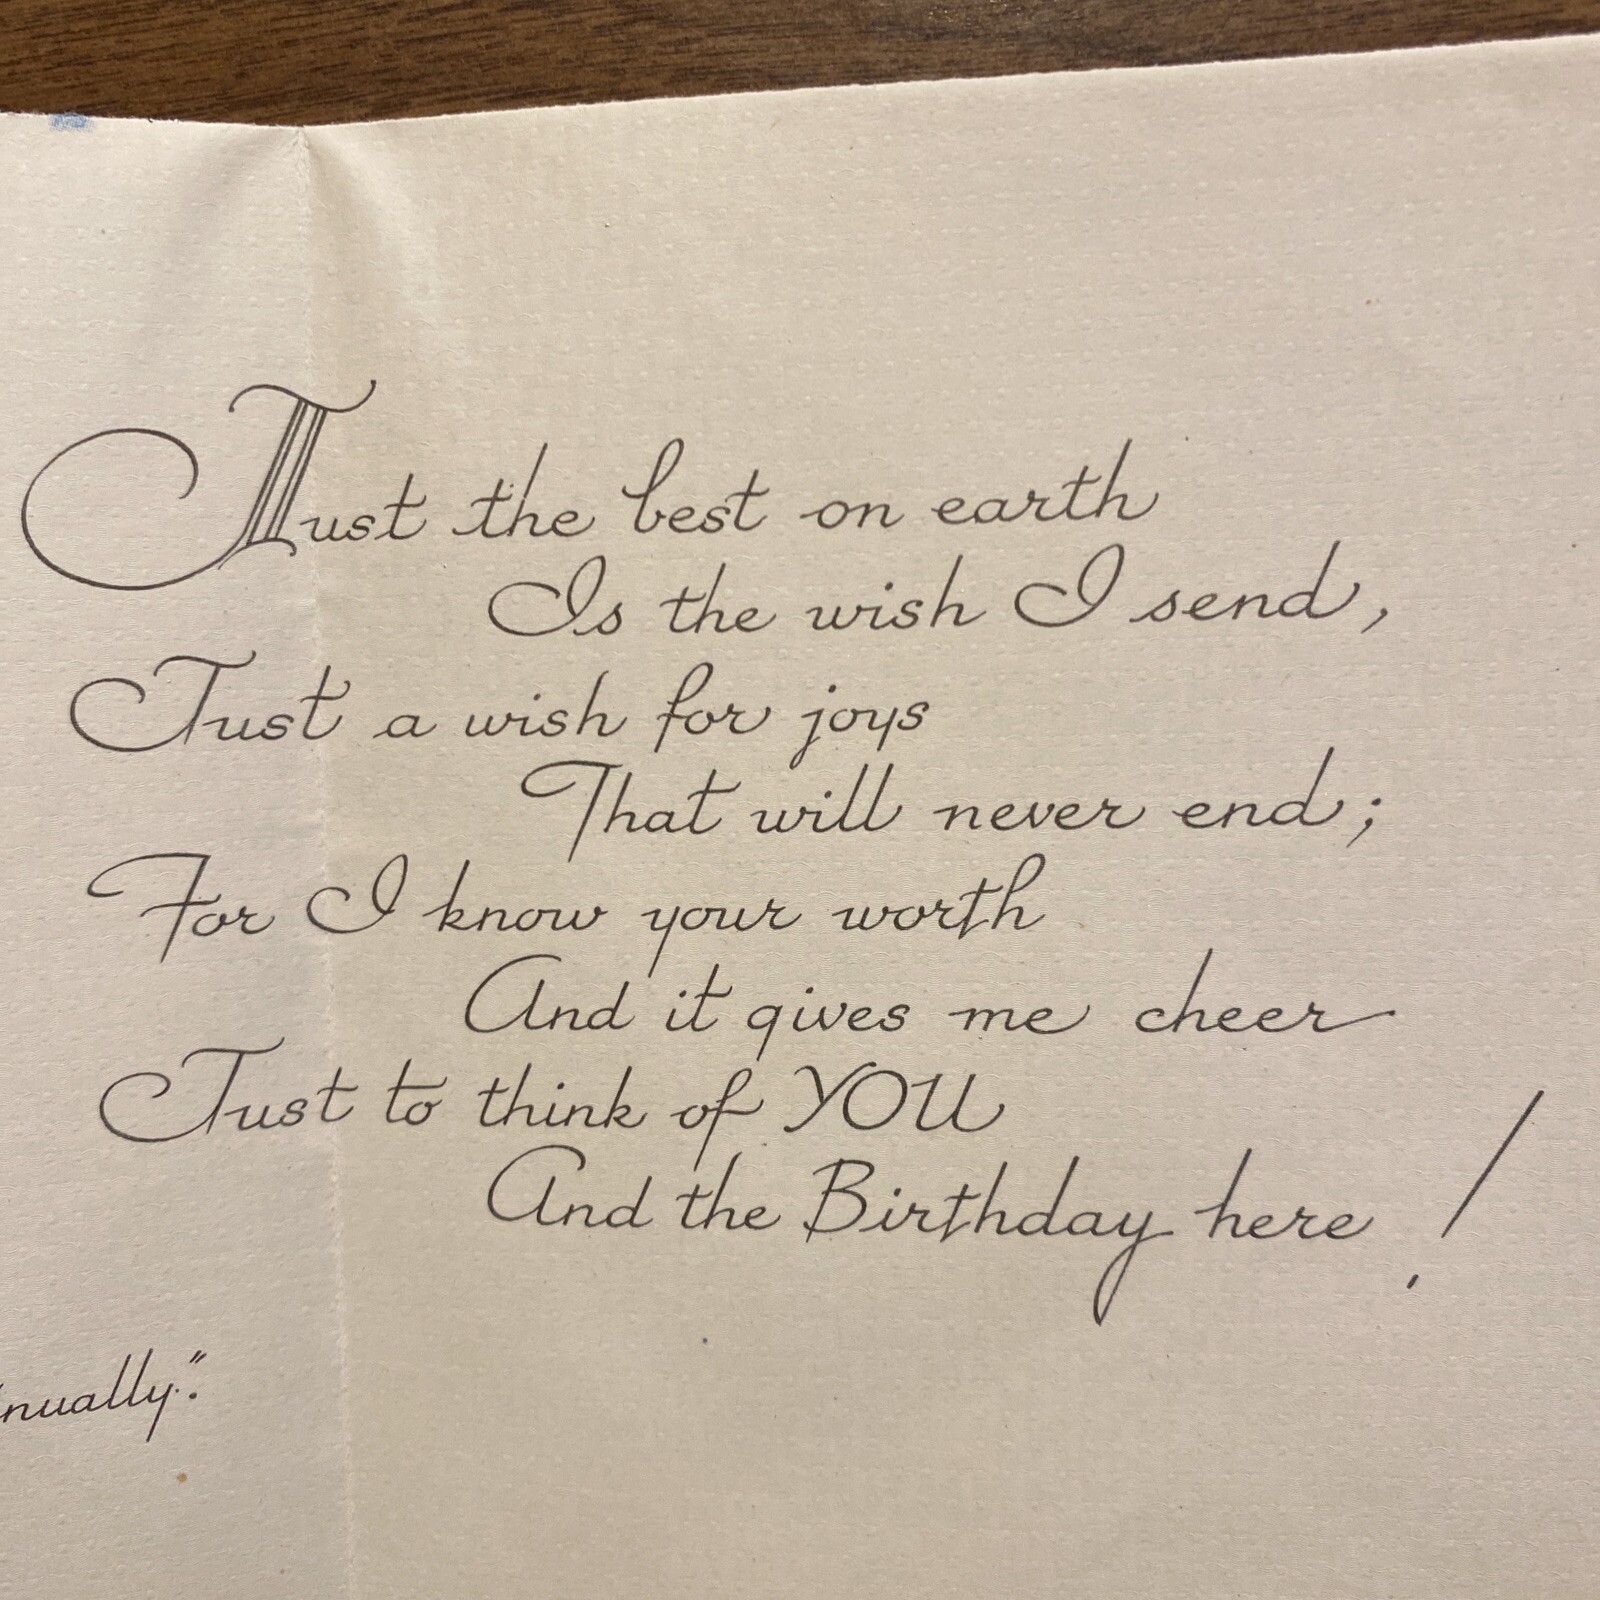 Just the best on earth
Is the wish I send,
Just a wish for joys
That will never end;
For I know your worth
And it gives me cheer
Just to think of YOU
And the Birthday here!